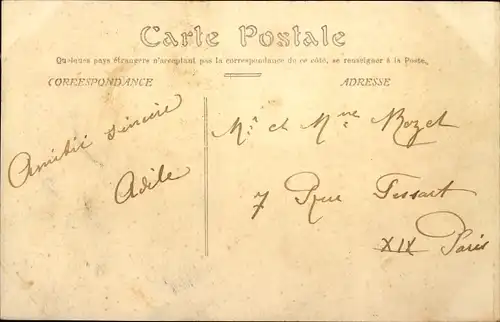 Carte Postale
Quelques pays étrangers n'acceptant pas la correspondance de ce côté, se renseigner à la Poste.
CORRESPONDANCE
ADRESSE
Amitié sincère
Adèle
Mr et Mme Rozet
7 Rue Tessart
XIX Paris